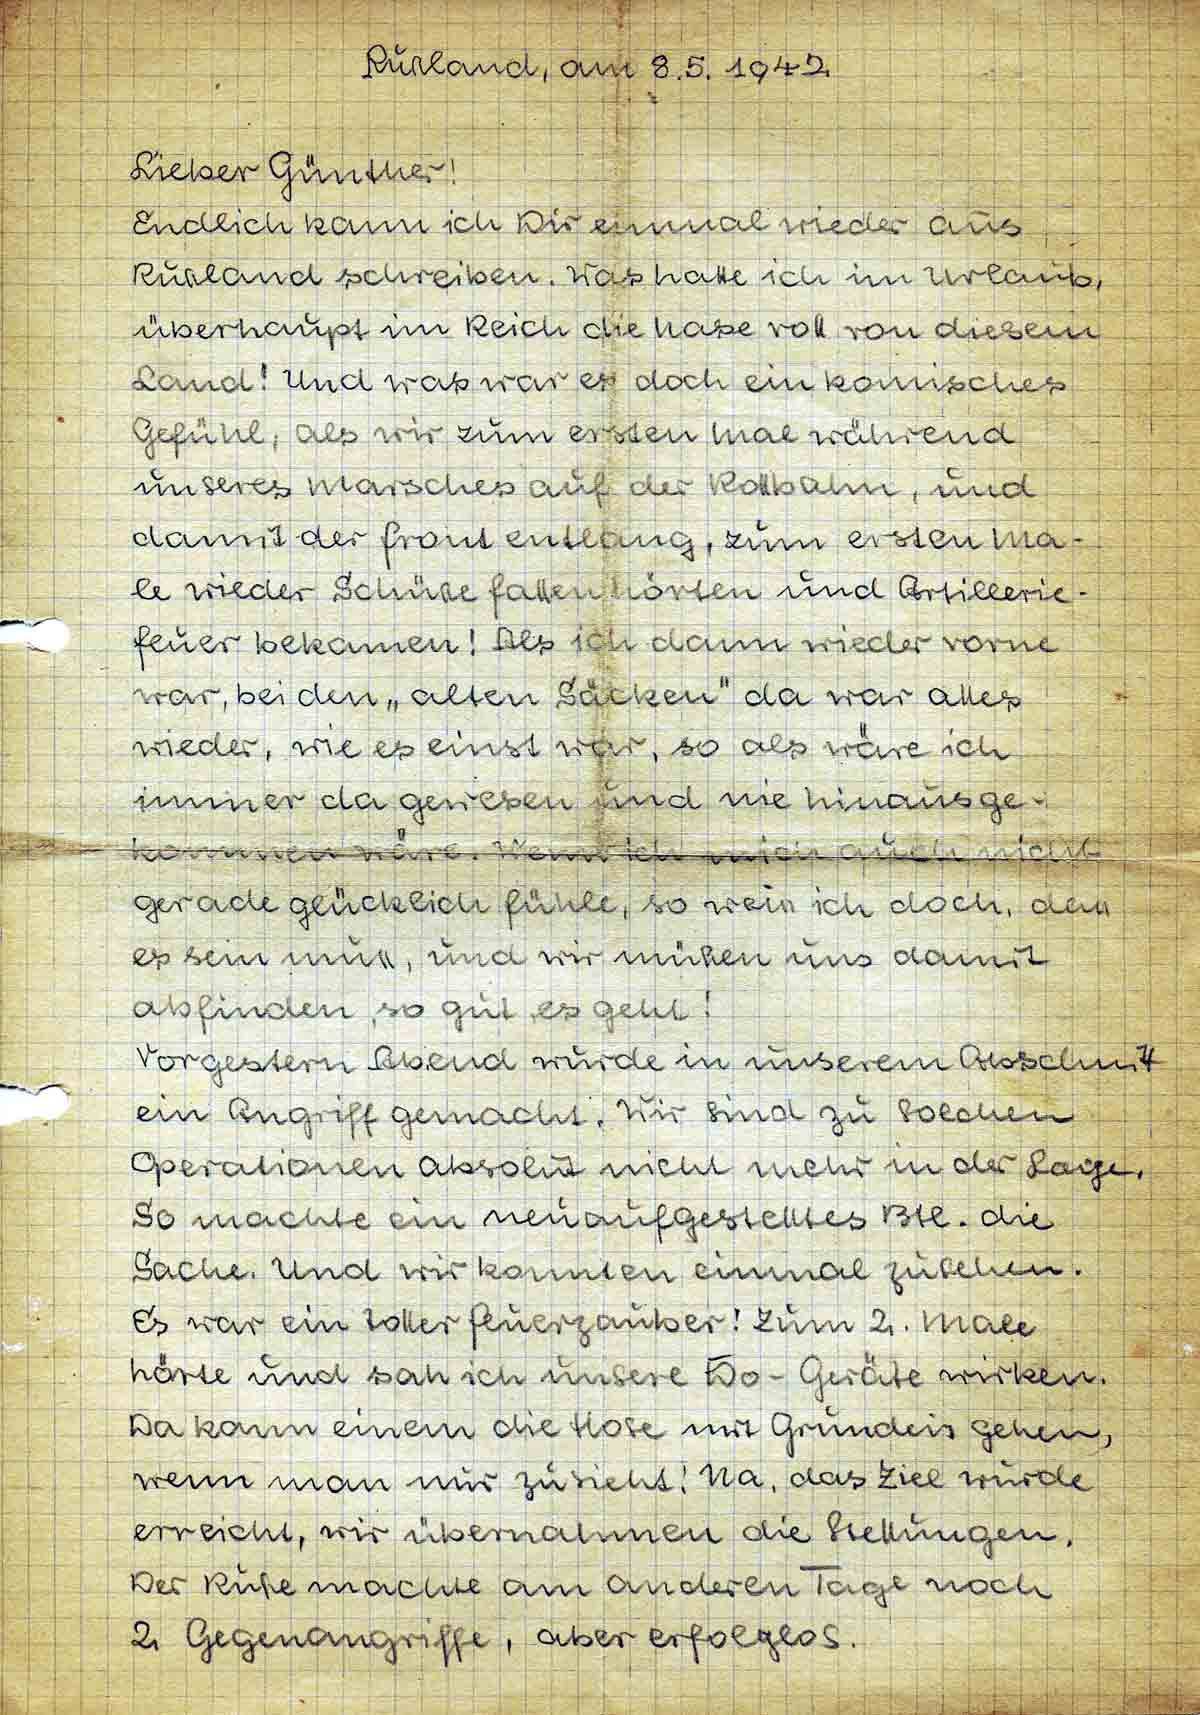 Rußland, am 8.5. 1942
Lieber Günther!
Endlich kann ich Dir einmal wieder aus
Rußland schreiben. Was hatte ich im Urlaub,
überhaupt im Reich die Nase voll von diesem
Land! Und was war es doch ein komisches
Gefühl, als wir zum ersten Mal während
unseres Marsches auf der Rollbahn, und
damit der Front entlang, zum ersten Ma-
le wieder Schüße fallen hörten und Artillerie-
feuer bekamen! Als ich dann wieder vorne
war, bei den „alten Säcken" da war alles
wieder, wie es einst war, so als wäre ich
immer da gewesen und nie hinausge-
kommen wäre. Wenn ich mich auch nicht
gerade glücklich fühle, so weiß ich doch, daß
es sein muß, und wir müßen uns damit
abfinden, so gut es geht!
Vorgestern Abend wurde in unserem Abschnitt
ein Angriff gemacht. Wir sind zu solchen
Operationen absolut nicht mehr in der Lage.
So machte ein neuaufgestelltes Btl. die
Sache. Und wir konnten einmal zusehen.
Es war ein toller Feuerzauber! Zum 2. Male
hörte und sah ich unsere Do-Geräte wirken.
Da kann einem die Hose mit Grundeis gehen,
wenn man nur zusieht! Na, das Ziel wurde
erreicht, wir übernahmen die Stellungen.
Der Ruße machte am anderen Tage noch
2 Gegenangriffe, aber erfolglos.